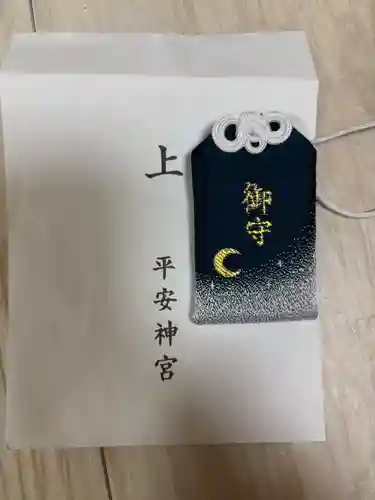 上
平安神宮
御守